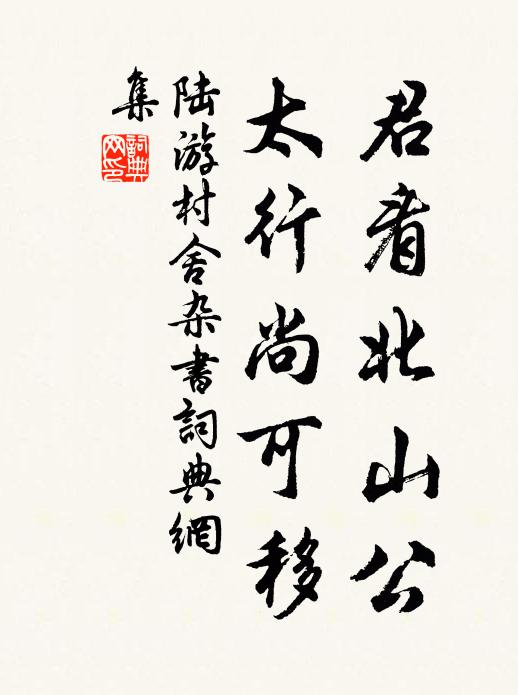 君看北山公
太行尚可移
陆游村舍杂書詞典網
集
詞典
网印